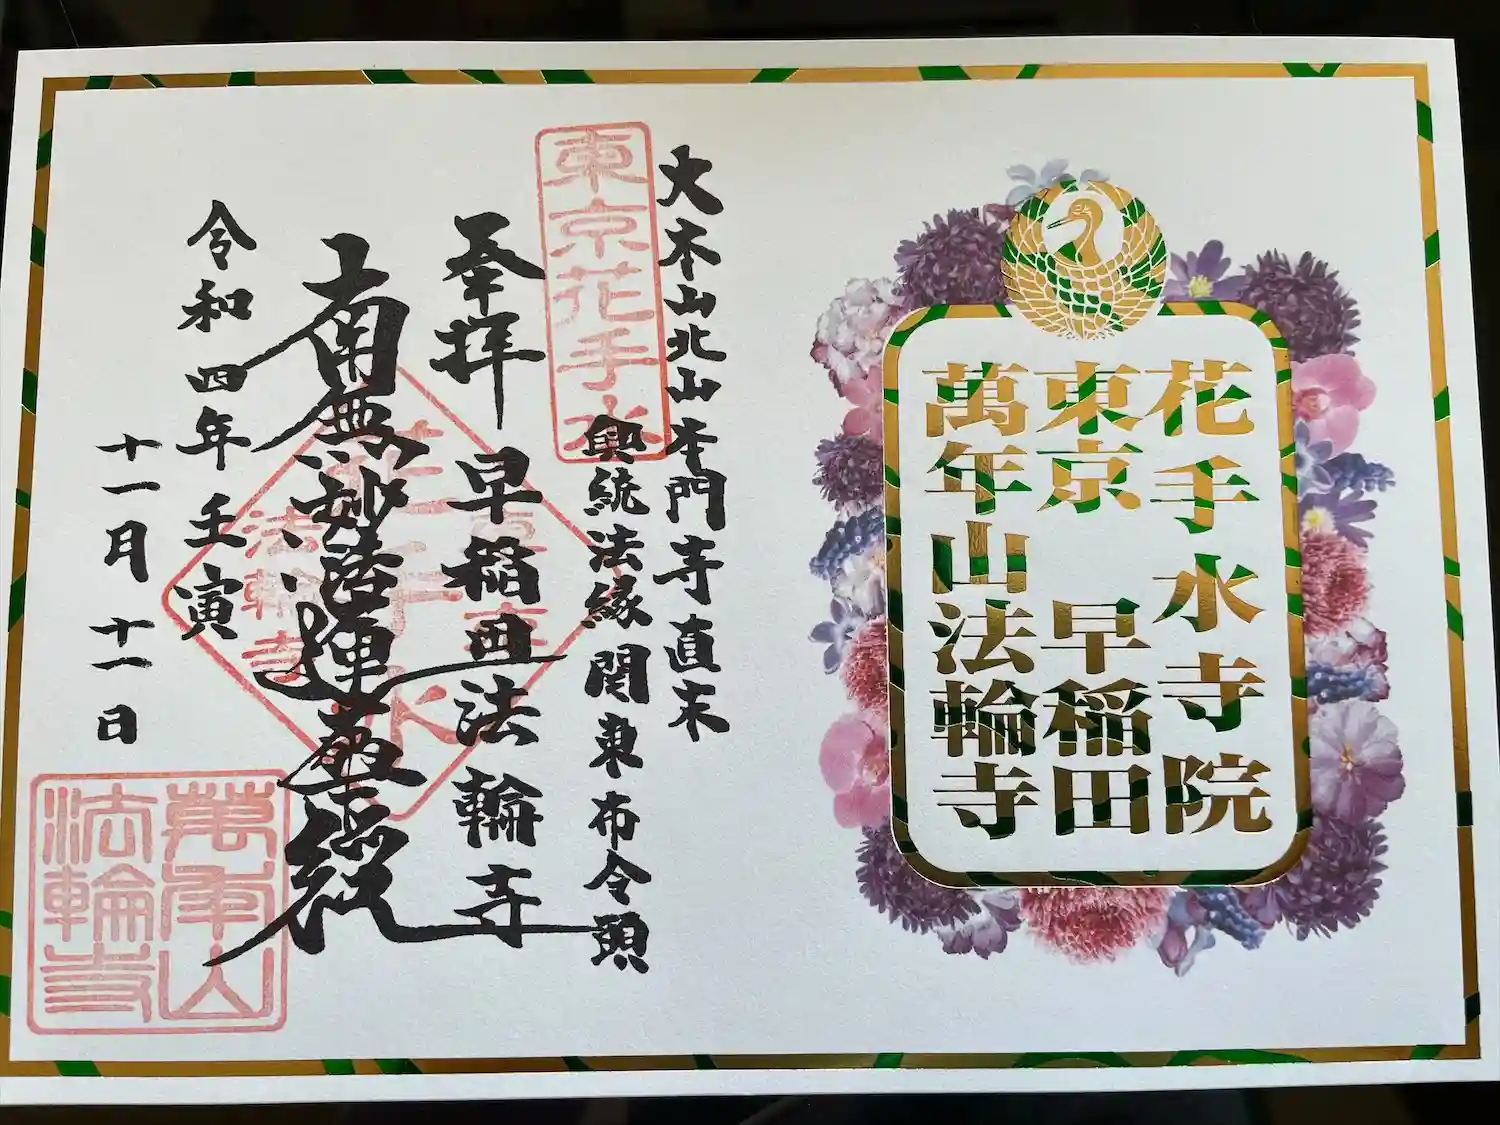 花手水寺院
東京 早稲田
萬年山法輪寺
大本山北山本門寺直末
東京花手水
興統法縁関東布令頭
奉拝 早稲田法輪寺
南無妙法蓮華経
令和四年壬寅
十一月十一日
法輪寺
萬年山
法輪寺